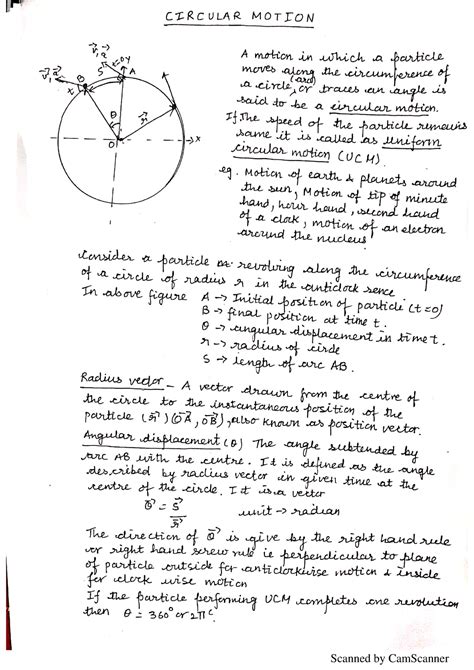 CIRCULAR MOTION
A motion in which a particle
moves along the circumference of
a circle, (arc) or traces an angle is
said to be a circular motion.
If the speed of the particle remains
same it is called as uniform
circular motion (UCM).
eg. Motion of earth & planets around
the sun, Motion of tip of minute
hand, hour hand, second hand
of a clock, motion of an electron
around the nucleus
B
S
A
t
θ
O
r
x
Consider a particle revolving along the circumference
of a circle of radius r in the anticlock sence
In above figure A → Initial position of particle (t=0)
B → final position at time t.
θ → angular displacement in time t.
r → radius of circle
S → length of arc AB.
Radius vector - A vector drawn from the centre of
the circle to the instantaneous position of the
particle (r⃗) (O⃗A, O⃗B), also known as position vector.
Angular displacement (θ) The angle subtended by
arc AB with the centre. It is defined as the angle
described by radius vector in given time at the
centre of the circle. It is a vector
θ⃗ = S⃗/r⃗ unit → radian
The direction of θ⃗ is give by the right hand rule
or right hand screw rule ie perpendicular to plane
of particle outside for anticlockwise motion & inside
for clock wise motion
If the particle performing UCM completes one revolution
then θ = 360° or 2π^c
Scanned by CamScanner